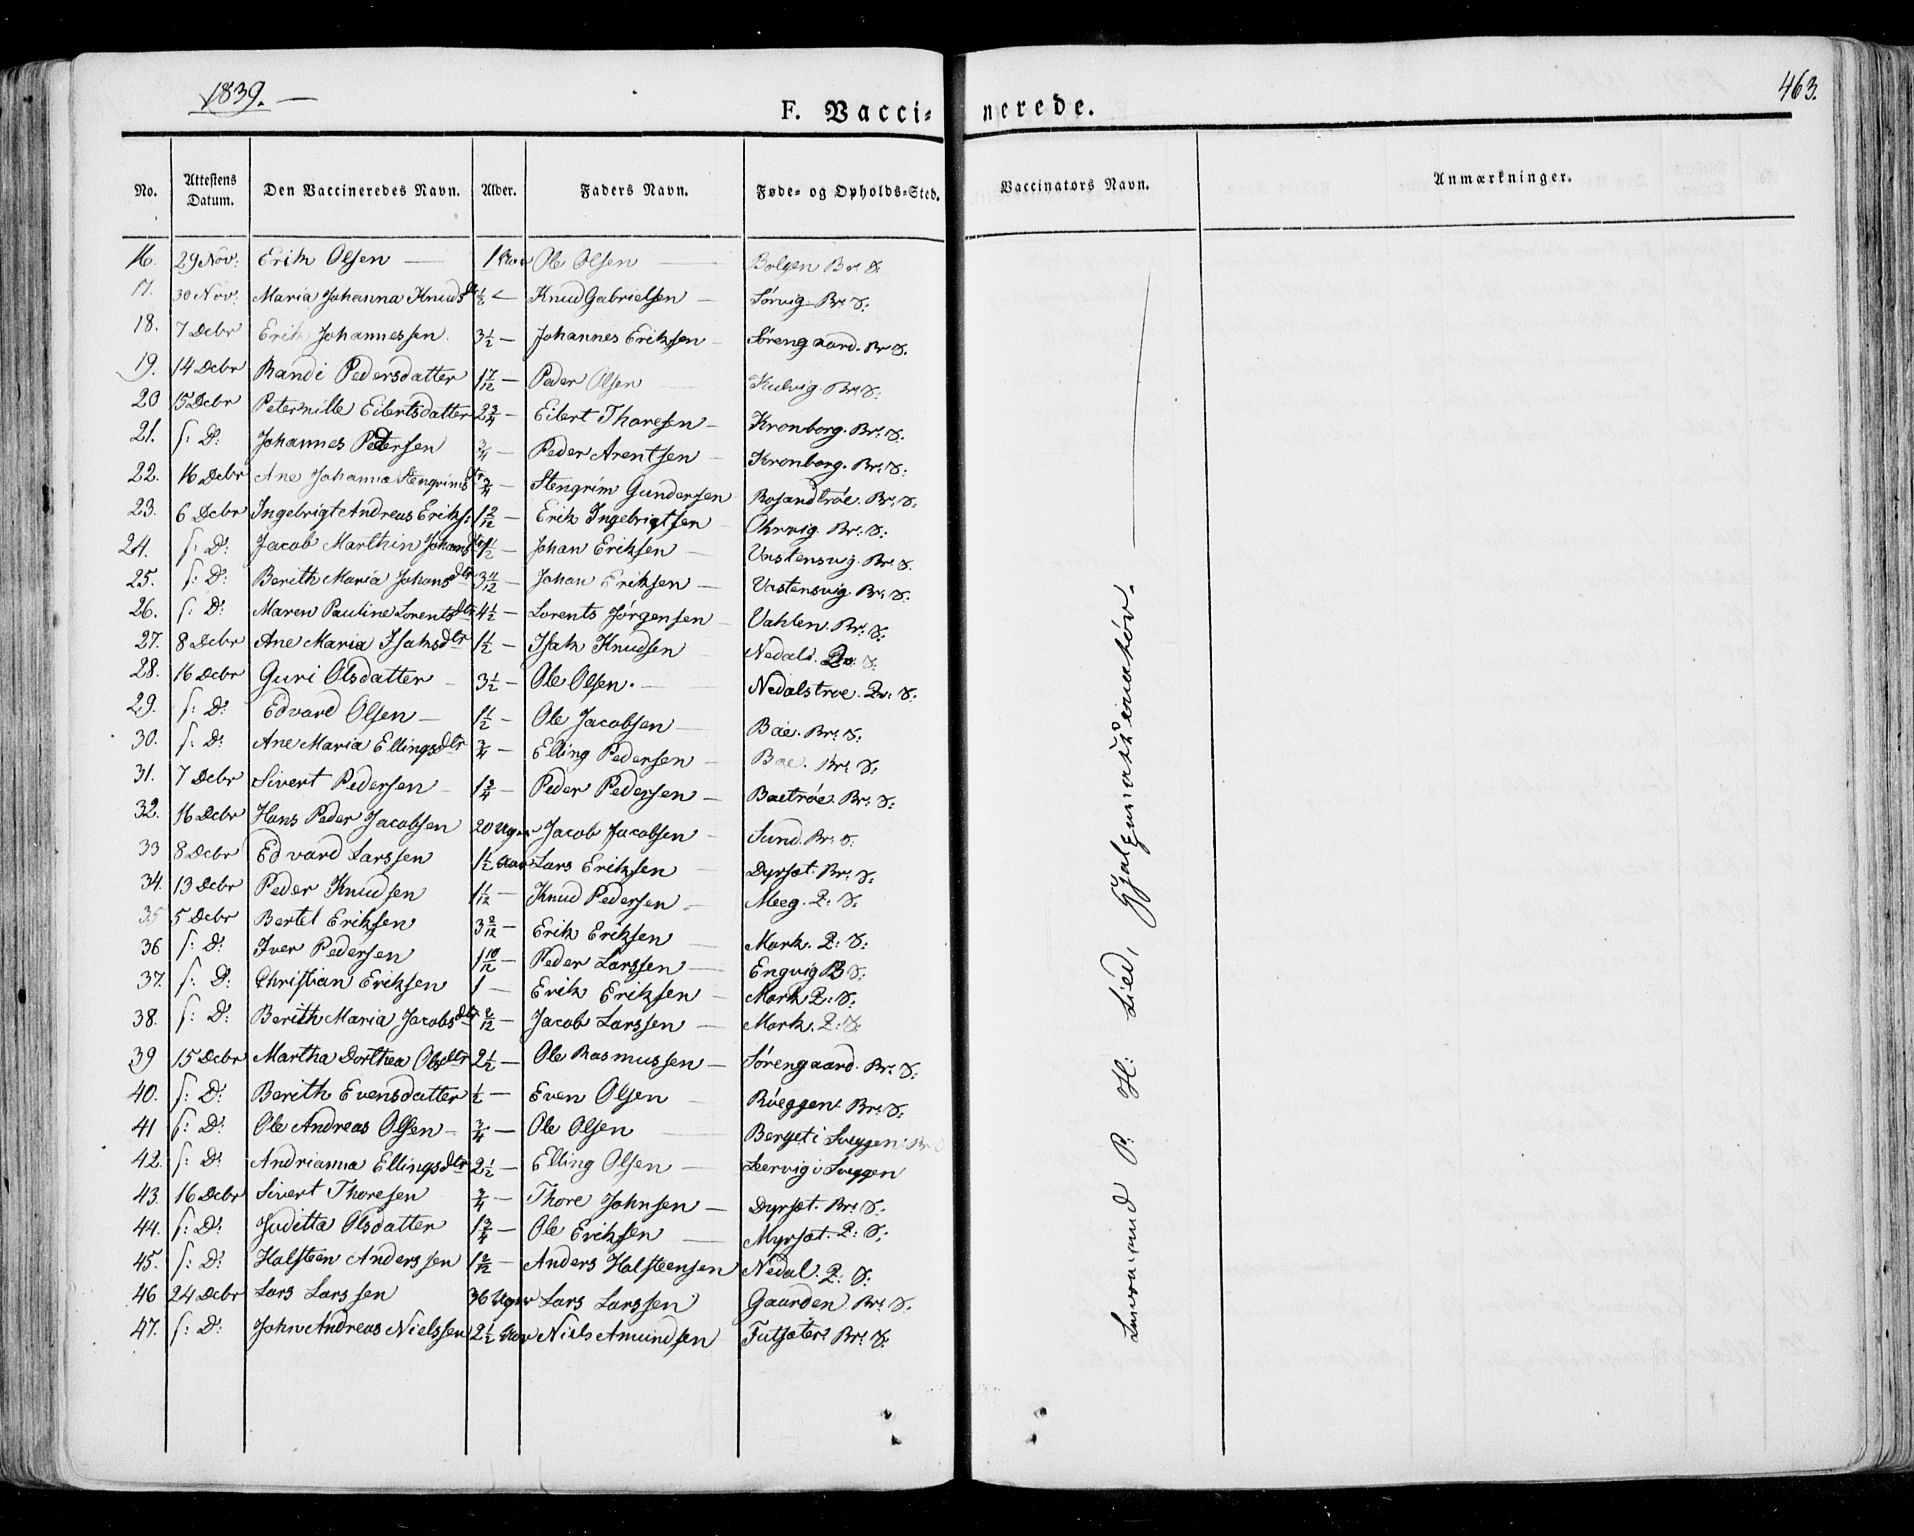 1839.
463.
F. Vaccinerede.
No. Attestens Datum. Den Vaccineredes Navn. Alder. Faders Navn. Føde- og Opholds-Sted. Vaccinators Navn. Anmærkninger.
16. 29 Nov: Erik Olsen — 1 Ole Olsen — Bolgen Br: S:
17. 30 Nov. Maria Johanna Knudsdtr ½ — Knud Gabrielsen — Sørvig Br: S:
18. 7 Decbr Erik Johannessen. 3½ — Johannes Eriksen — Sørengaard. Br S.
19. 14 Decbr Randi Pedersdatter 1 7/12 — Peder Olsen — Kulvig Br: S:
20 15 Decbr Peternille Eilertsdatter 2¾ — Eilert Thoresen — Kronborg. Br: S:
21. s: D: Johannes Pedersen ¾ — Peder Arentsen — Kronborg. Br: S:
22. 16 Decbr Ane Johanna Stengrimsdtr ¾ — Stengrim Gundersen Rosandtrøe. Br: S:
23. 6 Decbr Ingebrigt Andreas Eriks: 1 2/12 — Erik Ingebrigtsen Ohrvig. Br: S:
24. s: D: Jacob Marthin Johans Johan Eriksen — Vastensvig. Br: S.
25. s: D: Berith Maria Johansdtr 3 — Johan Eriksen — Vastensvig. Br: S:
26. s: D: Maren Pauline Lorentsdtr 4½ — Lorents Jørgensen — Vahlen. Br: S:
27. 8 Decbr Ane Maria Isaksdtr 1½ — Isak Knudsen Nedal. S:
28. 16 Decbr Guri Olsdatter — 3½ — Ole Olsen. — Nedalstrøe. S:
29. s: D: Edvard Olsen — 1½ — Ole Jacobsen — Bae. Br: S:
30. s: D: Ane Maria Ellingsdtr ¾ — Elling Pedersen — Bae. Br: S:
31. 7 Decbr Sivert Pedersen — 1¾ — Peder Pedersen — Baetrøe. Br: S:
32. 16 Decbr Hans Peder Jacobsen 20 Uger Jacob Jacobsen — Sund. Br: S:
33 8 Decbr Edvard Larssen 1½ Aar Lars Eriksen — Dyrsæt. Br: S:
34. 13 Decbr Peder Knudsen 1 1/12 — Knud Pedersen — Meeg. Q: S:
35 5 Decbr Bertel Eriksen 3 2/12 — Erik Eriksen — Mork. Q: S:
36 s: D: Iver Pedersen 1 10/12 — Peder Larssen — Engvig B S:
37. s: D: Christian Eriksen 1 — Erik Eriksen — Mork Q: S:
38. s: D: Berith Maria Jacobsdtr 2/12 — Jacob Larssen — Mork. Q: S:
39 15 Decbr Martha Dorthea Olsdtr 2½ — Ole Rasmussen — Sørengaard. Br: S:
40. s: D: Berith Evensdatter ½ — Even Olsen — Røeggen. Br: S:
41 s: D: Ole Andreas Olsen — ¾ — Ole Olsen — Berget i Sveggen: Br
42. s: D: Andrianna Ellingsdtr 2½ — Elling Olsen — Leervig i Sveggen
43. 16 Decbr Sivert Thoresen ¾ — Thore Johnsen — Dyrsæt. Br: S:
44. s: D: Juditta Olsdatter 1¾ — Ole Eriksen — Myrsæt. Q: S:
45. s: D: Halsteen Anderssen 1 2/12 — Anders Halsteensen Nedal. Q: S:
46 24 Decbr Lars Larssen 36 Uger Lars Larssen Gaarden. Br: S:
47. s: D: John Andreas Nielssen 2½ Aar Niels Amundsen Futsæter. Br: S:
P. H: Lied, Hjelpevaccinateur. —